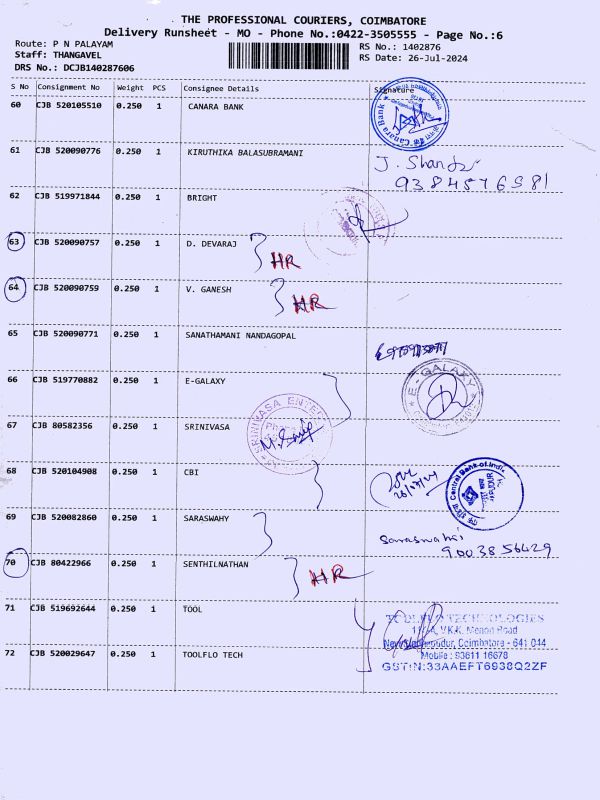 THE PROFESSIONAL COURIERS, COIMBATORE
Delivery Runsheet - MO - Phone No.:0422-3505555 - Page No.:6
Route: P N PALAYAM
RS No.: 1402876
Staff: THANGAVEL
RS Date: 26-Jul-2024
DRS No.: DCJB140287606
S No Consignment No Weight PCS Consignee Details Signature
60 CJB 520105510 0.250 1 CANARA BANK
Canara Bank
61 CJB 520090776 0.250 1 KIRUTHIKA BALASUBRAMANI
J. Shander
9384576581
62 CJB 519971844 0.250 1 BRIGHT
63 CJB 520090757 0.250 1 D. DEVARAJ HR
64 CJB 520090759 0.250 1 V. GANESH HR
65 CJB 520090771 0.250 1 SANATHAMANI NANDAGOPAL
66 CJB 519770882 0.250 1 E-GALAXY
E-GALAXY
67 CJB 80582356 0.250 1 SRINIVASA
SRINIVASA ENTER
68 CJB 520104908 0.250 1 CBI
Central Bank of India
69 CJB 520082860 0.250 1 SARASWAHY
Saraswahi
9003856429
70 CJB 80422966 0.250 1 SENTHILNATHAN HR
71 CJB 519692644 0.250 1 TOOL
TOOLFLO TECHNOLOGIES
V.K.K. Menon Road
Coimbatore - 641 044
72 CJB 520029647 0.250 1 TOOLFLO TECH
Mobile : 93611 16678
GSTIN:33AAEFT6938Q2ZF